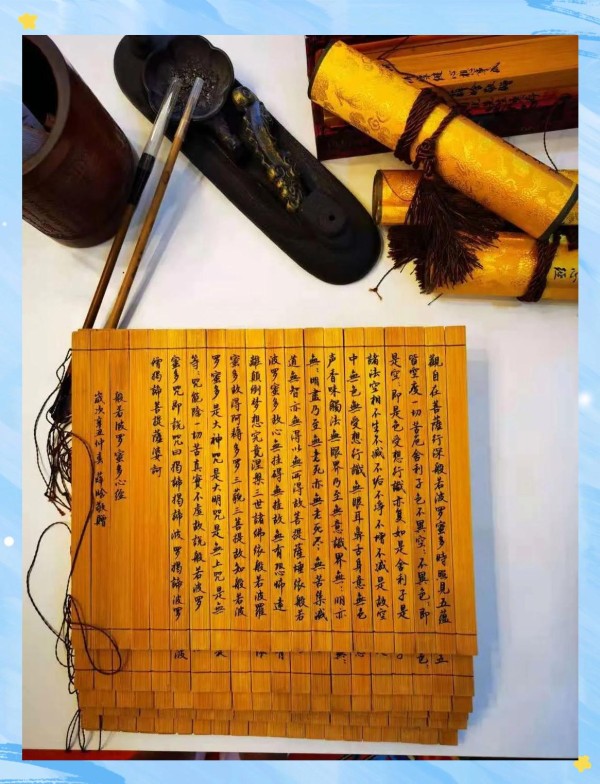 觀自在菩薩行深般若波羅蜜多時照見五蘊
皆空度一切苦厄舍利子色不異空〻不異色即
是空〻即是色受想行識亦复如是舍利子是
諸法空相不生不滅不垢不淨不增不減是故空
中無色無受想行識無眼耳鼻舌身意無色
声香味觸法無眼界乃至無意識界無〻明亦
無〻明盡乃至無老死亦無老死尽無苦集滅
道無智亦無得以無所得故菩提薩埵依般若
波罗蜜多故心無挂碍無挂故無有恐怖遠
離顛倒夢想究竟涅槃三世諸佛依般若波羅
蜜多故得阿耨多罗三藐三菩提故知般若波
罗蜜多是大神咒是大明咒是無上咒是無
等〻咒能除一切苦真實不虛故說般若波罗
蜜多咒即說咒曰揭諦揭諦波罗揭諦波罗
僧揭諦菩提薩婆訶
般若波罗蜜多心經
歲次辛丑仲春敬贈